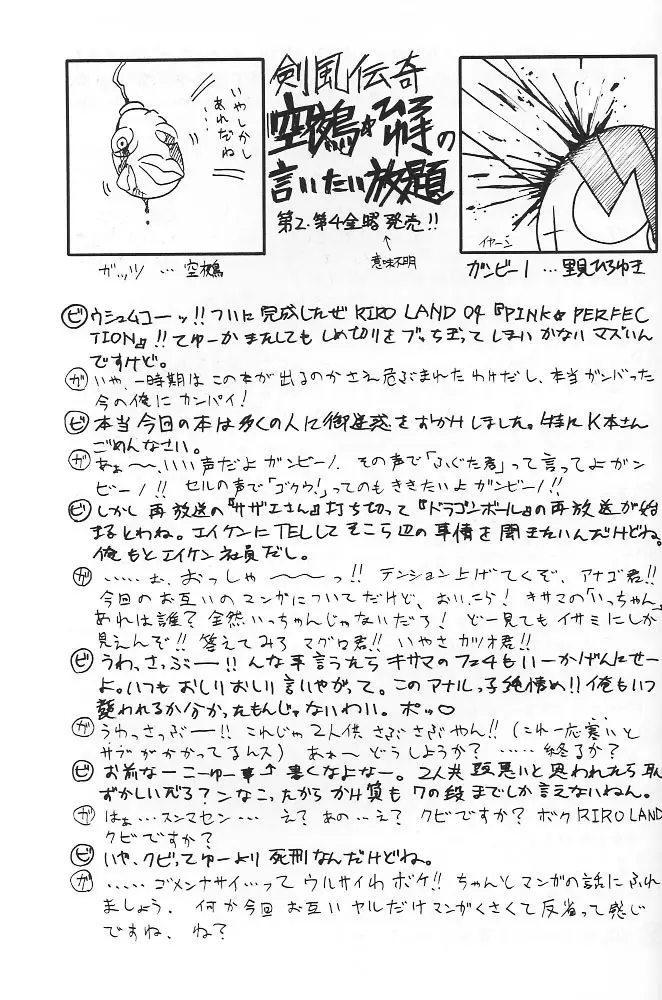 いやしかし
あれだね
ガッツ … 空鵺
剣風伝奇
空鵺☆ひろ手の
言いたい放題
第2.第4金曜発売!!
↑
意味不明
イヤーン
ガンビー1 … 里見ひろゆき
ビ ウシュムコーッ!! ついに完成したぜ RIRO LAND 04『PINK☆PERFEC
TION』!! てゆーかまたしてもしめ切りをブッちぎってしまいかなりマズいん
ですけど。
ガ いや、一時期はこの本が出るのかさえ危ぶまれたわけだし、本当ガンバった
今の俺にカンパイ!
ビ 本当今回の本は多くの人に御迷惑をおかけしました。特にK本さん
ごめんなさい。
ガ あぁ〜、いい声だよガンビーノ. その声で「ふぐた君」って言ってよガン
ビーノ!! セルの声で「ゴクウ!」ってのもききたいよガンビーノ!!
ビ しかし再放送の『サザエさん』打ち切って『ドラゴンボール』の再放送が始
まるとわね。エイケンにTELしてそこら辺の事情を聞きたいんだけどね。
俺もとエイケン社員だし。
ガ ……ぉ、おっしゃ〜〜〜っ!! テンション上げてくぞ、アナゴ君!!
今回のお互いのマンガについてだけど、おいこら! キサマの「いっちゃん」
あれは誰? 全然いっちゃんじゃないだろ! どー見てもイサミにしか
見えんぞ!! 答えてみろマグロ君!! いやさカツオ君!!
ビ うわ、さっぶー!! んな事言うたらキサマのフェ4もいーかげんにせー
よ。いつもおしりおしり言いやがって。このアナルっ子純情め!! 俺もいつ
襲われるか分かったもんじゃないわい。ポッ♡
ガ うわっさっぶー!! これじゃ2人供さぶさぶやん!! (これ一応寒いと
サブがかかってるんス) あぁ〜どうしようか? ……終るか?
ビ お前なーこーゆー事↑書くなよなー。2人共頭悪いと思われたら恥
ずかしいだろ? ンなこったからかけ算も7の段までしか言えないねん。
ガ はぁ…スンマセン… え? あの…え? クビですか? ボク RIRO LAND
クビですか?
ビ いや、クビってゆーより死刑なんだけどね。
ガ ……ゴメンナサイ…ってウルサイわボケ!! ちゃんとマンガの話にふれ
ましょう. 何か今回お互いヤルだけマンガくさくて反省って感じ
ですね、ね?